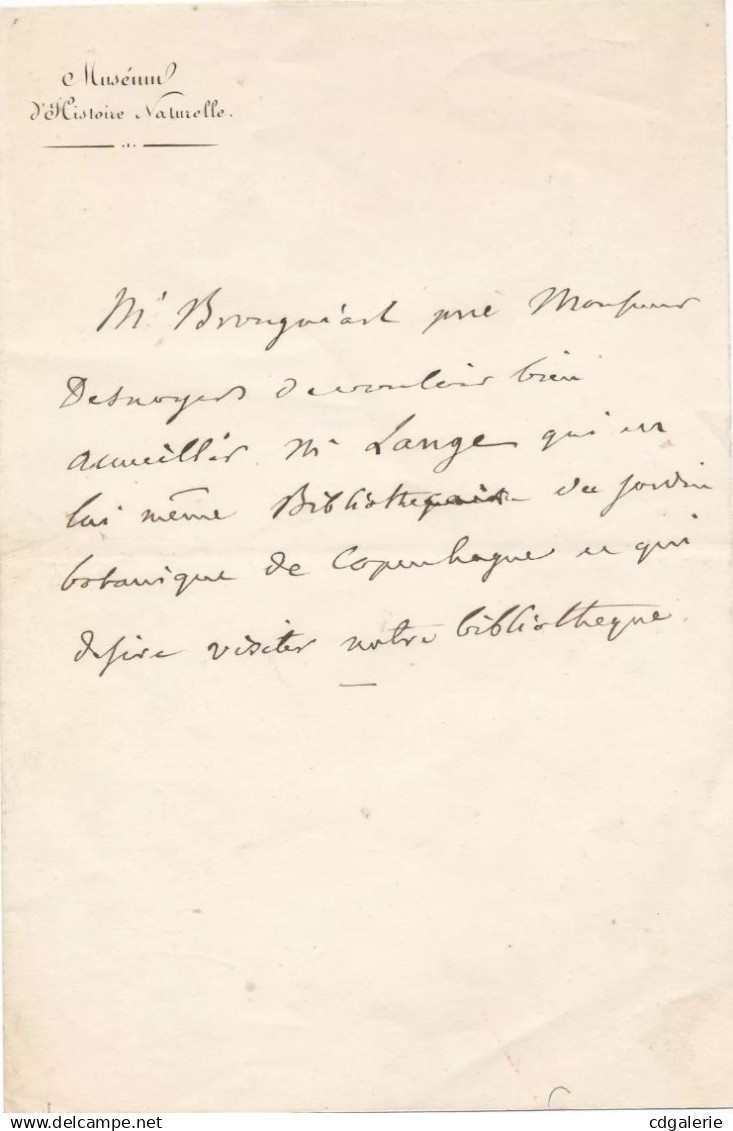 Muséum
d'Histoire Naturelle.
Mr Brongniart prie Monsieur
Desnoyers de vouloir bien
accueillir Mr Lange qui est
lui même Bibliothecaire du jardin
botanique de Copenhague et qui
desire visiter notre bibliotheque
delcampe.net
cdgalerie